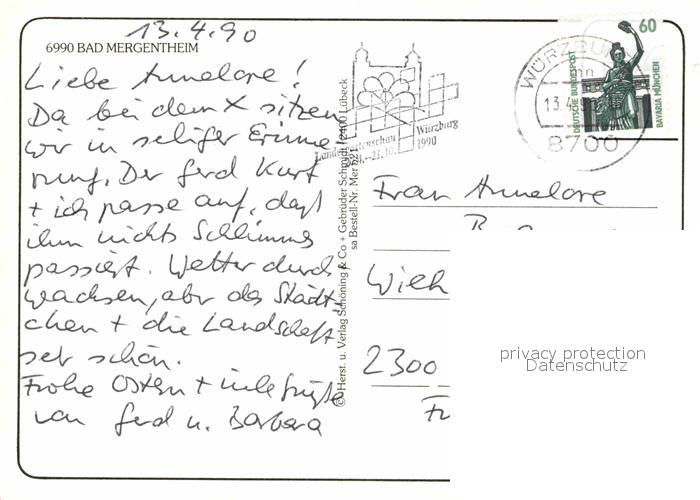 13.4.90
6990 BAD MERGENTHEIM
Liebe Annelore!
Da bei dem X sitzen
wir in seliger Erinne-
rung. Der Gerd kurt
+ ich passe auf, daß
ihm nichts Schlimmes
passiert. Wetter durch-
wachsen, aber das Städt-
chen + die Landschaft
sehr schön.
Frohe Ostern + viele Grüße
von Gerd u. Barbara
© Herst. u. Verlag Schöning & Co + Gebrüder Schmidt, 2400 Lübeck
sa Bestell-Nr. Mer
Landesgartenschau Würzburg
21.10. 1990
WÜRZBURG
13.4.
8700
60
DEUTSCHE BUNDESPOST
BAVARIA MÜNCHEN
Frau Annelore
2300
privacy protection
Datenschutz